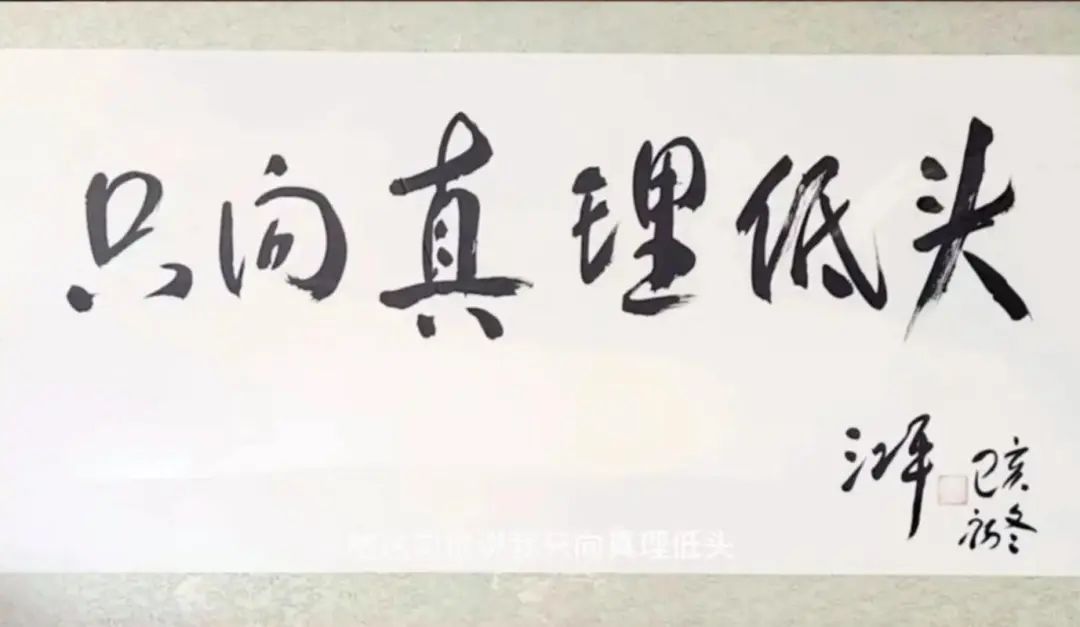 只向真理低头
江平
己亥
初冬
只向真理低头